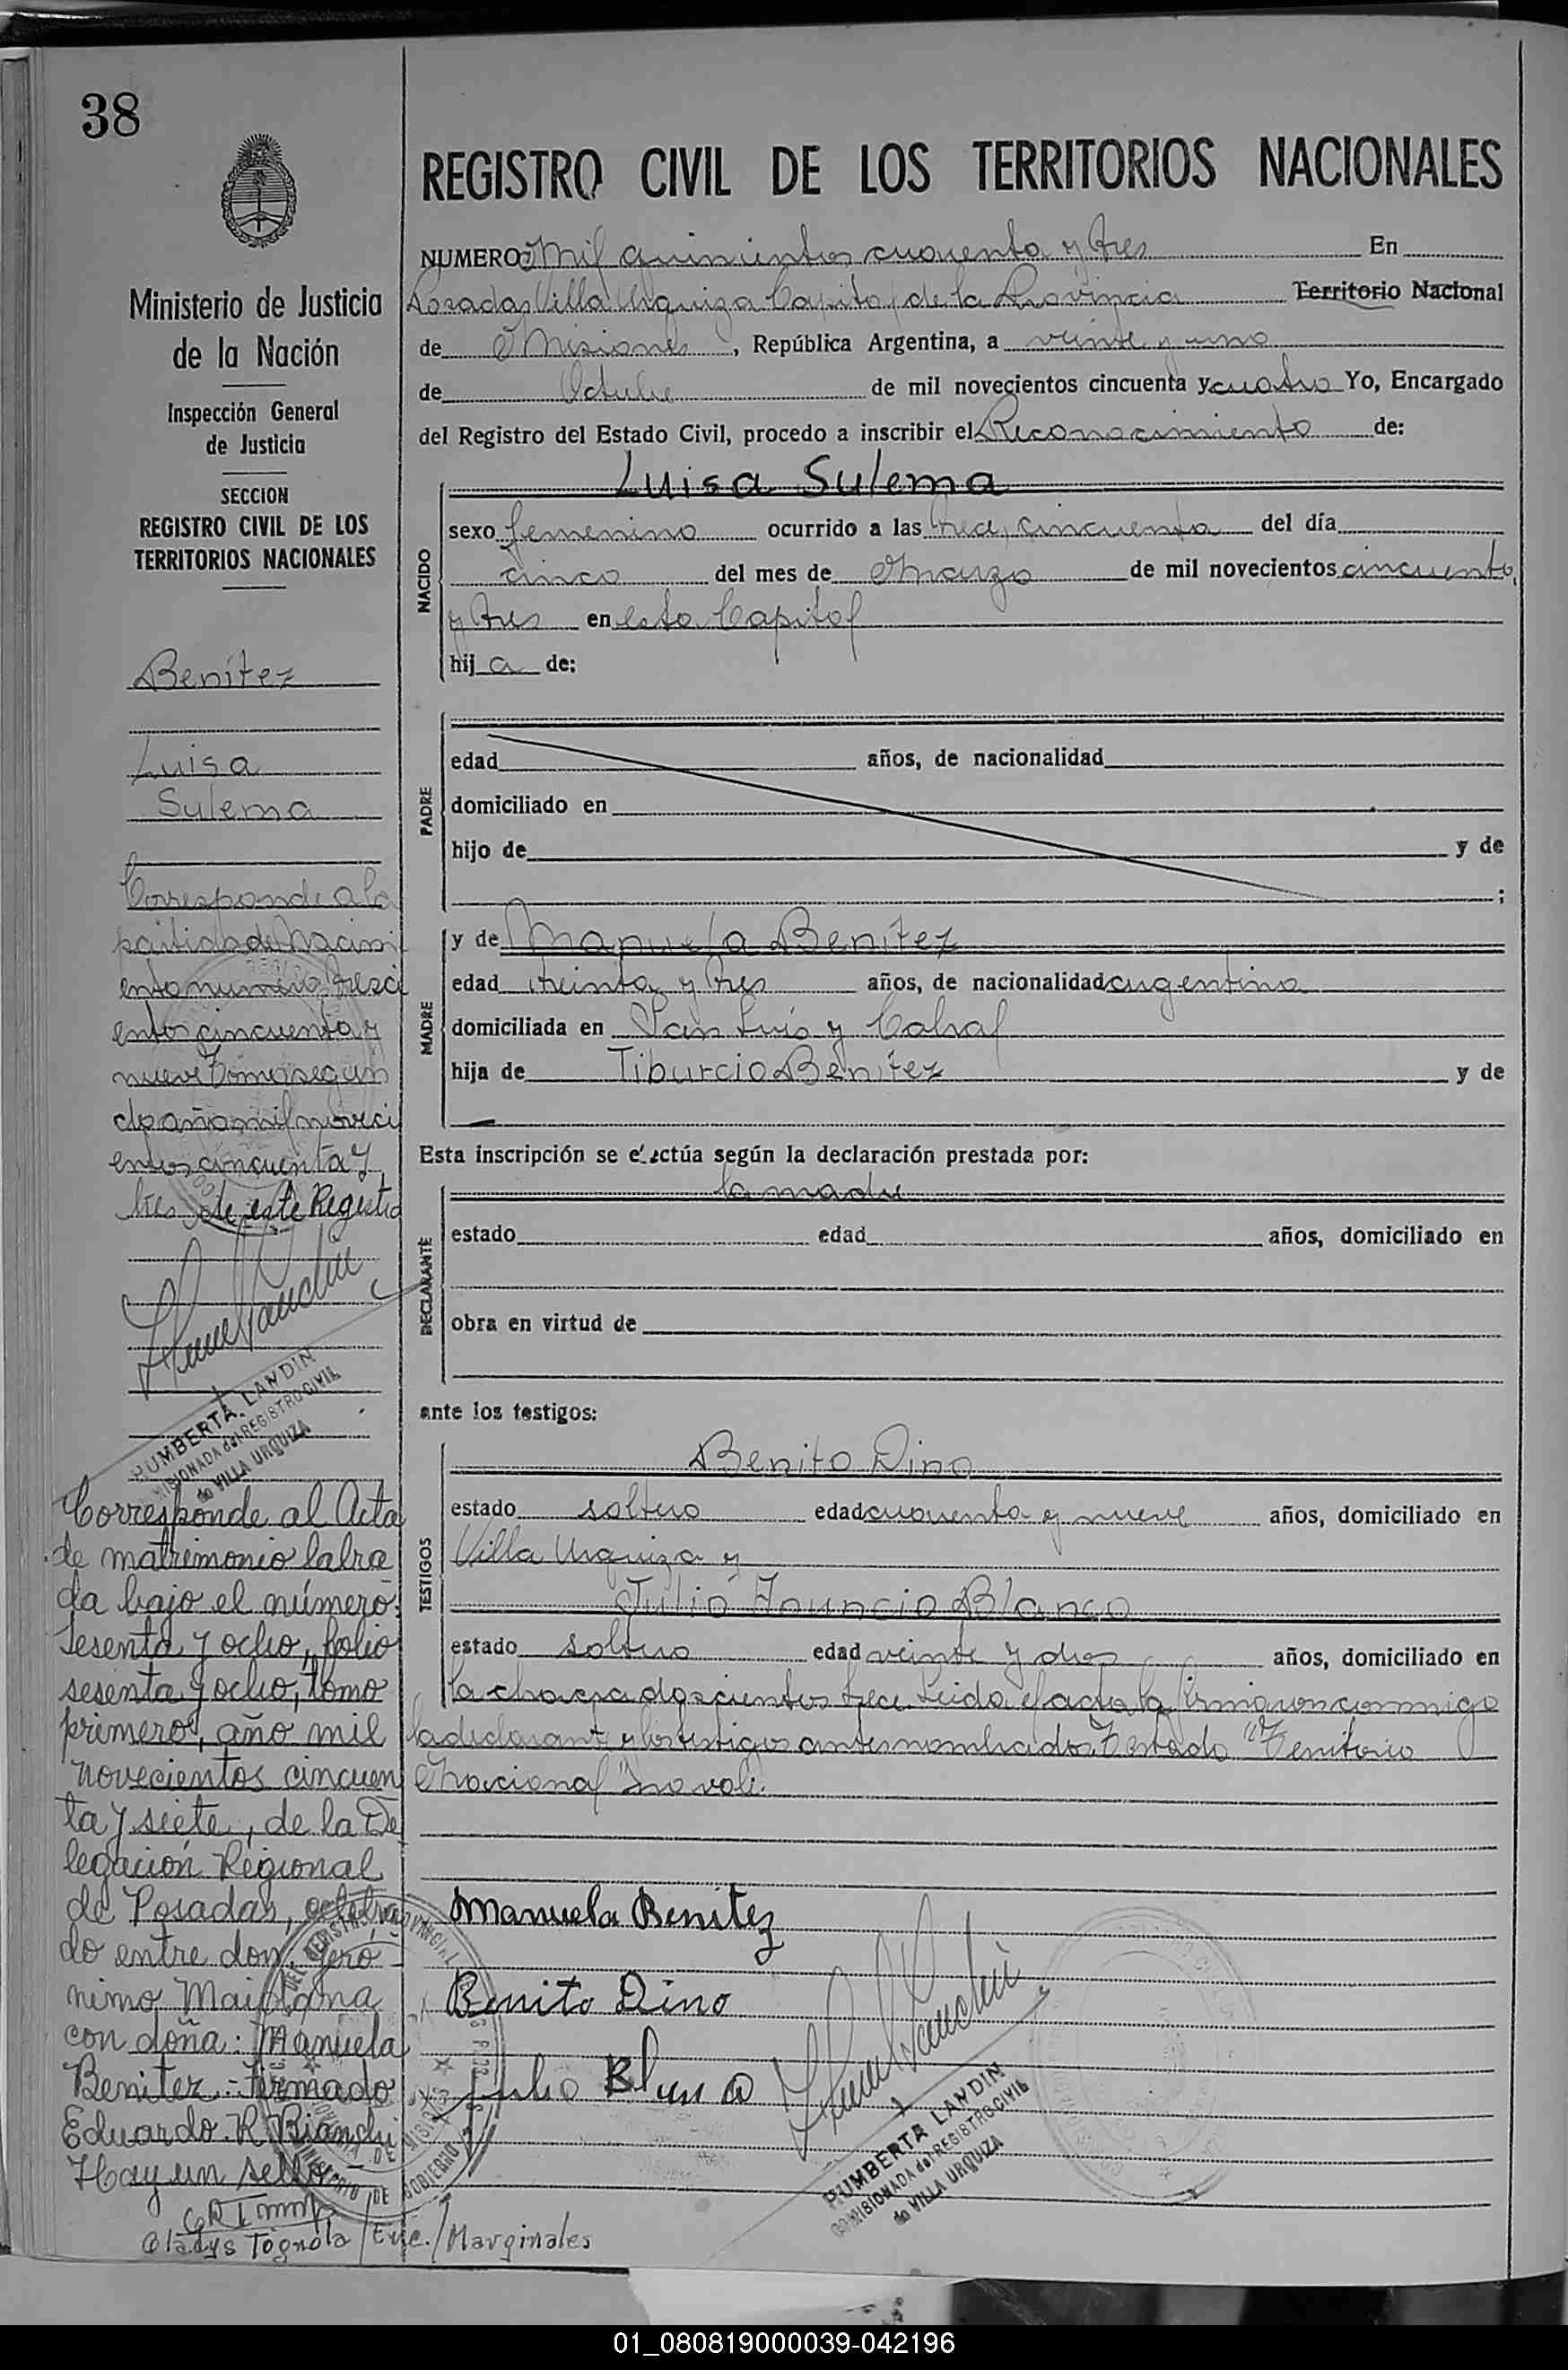 38
REGISTRO CIVIL DE LOS TERRITORIOS NACIONALES
Ministerio de Justicia
de la Nación
Inspección General
de Justicia
SECCION
REGISTRO CIVIL DE LOS
TERRITORIOS NACIONALES
Benítez
Luisa
Sulema
Corresponde a la
partida de Nacimi
ento numero tresci
entos cincuenta y
nueve tomo segun
do año mil noveci
entos cincuenta y
tres de este Registro
RUMBERTA LANDIN
COMISIONADA del REGISTRO CIVIL
de VILLA URQUIZA
Corresponde al Acta
de matrimonio labra
da bajo el número:
sesenta y ocho, folio
sesenta y ocho, tomo
primero, año mil
novecientos cincuen
ta y siete, de la De
legación Regional
de Posadas, celebra
do entre don: Geró-
nimo
con doña: Manuela
Benitez.- Firmado
Eduardo R. Bianchi
Hay un sello.-
Gladys Tognola / Enc. / Marginales
NUMERO Mil quinientos cuarenta y tres En
Posadas Villa Urquiza Capital de la Provincia Territorio Nacional
de Misiones, República Argentina, a veinte y uno
de Octubre de mil novecientos cincuenta y cuatro Yo, Encargado
del Registro del Estado Civil, procedo a inscribir el Reconocimiento de:
NACIDO
Luisa Sulema
sexo femenino ocurrido a las cincuenta del día
cinco del mes de Marzo de mil novecientos cincuenta
y tres en esta Capital
hija de:
PADRE
edad años, de nacionalidad
domiciliado en
hijo de y de
;
MADRE
y de Manuela Benitez
edad treinta y tres años, de nacionalidad argentina
domiciliada en San Luis y Cabral
hija de Tiburcio Benitez y de
Esta inscripción se efectúa según la declaración prestada por:
DECLARANTE
la madre
estado edad años, domiciliado en
obra en virtud de
ante los testigos:
TESTIGOS
Benito Dino
estado soltero edad cuarenta y nueve años, domiciliado en
Villa Urquiza y
Julio Asuncio Blanco
estado soltero edad veinte y dos años, domiciliado en
la chacra doscientos trece. Leida el acta la firmaron conmigo
la declarante y los testigos antes nombrados. Testado "Territorio
Nacional" no vale.
Manuela Benitez
Benito Dino
Julio
RUMBERTA LANDIN
COMISIONADA del REGISTRO CIVIL
de VILLA URQUIZA
01_080819000039-042196